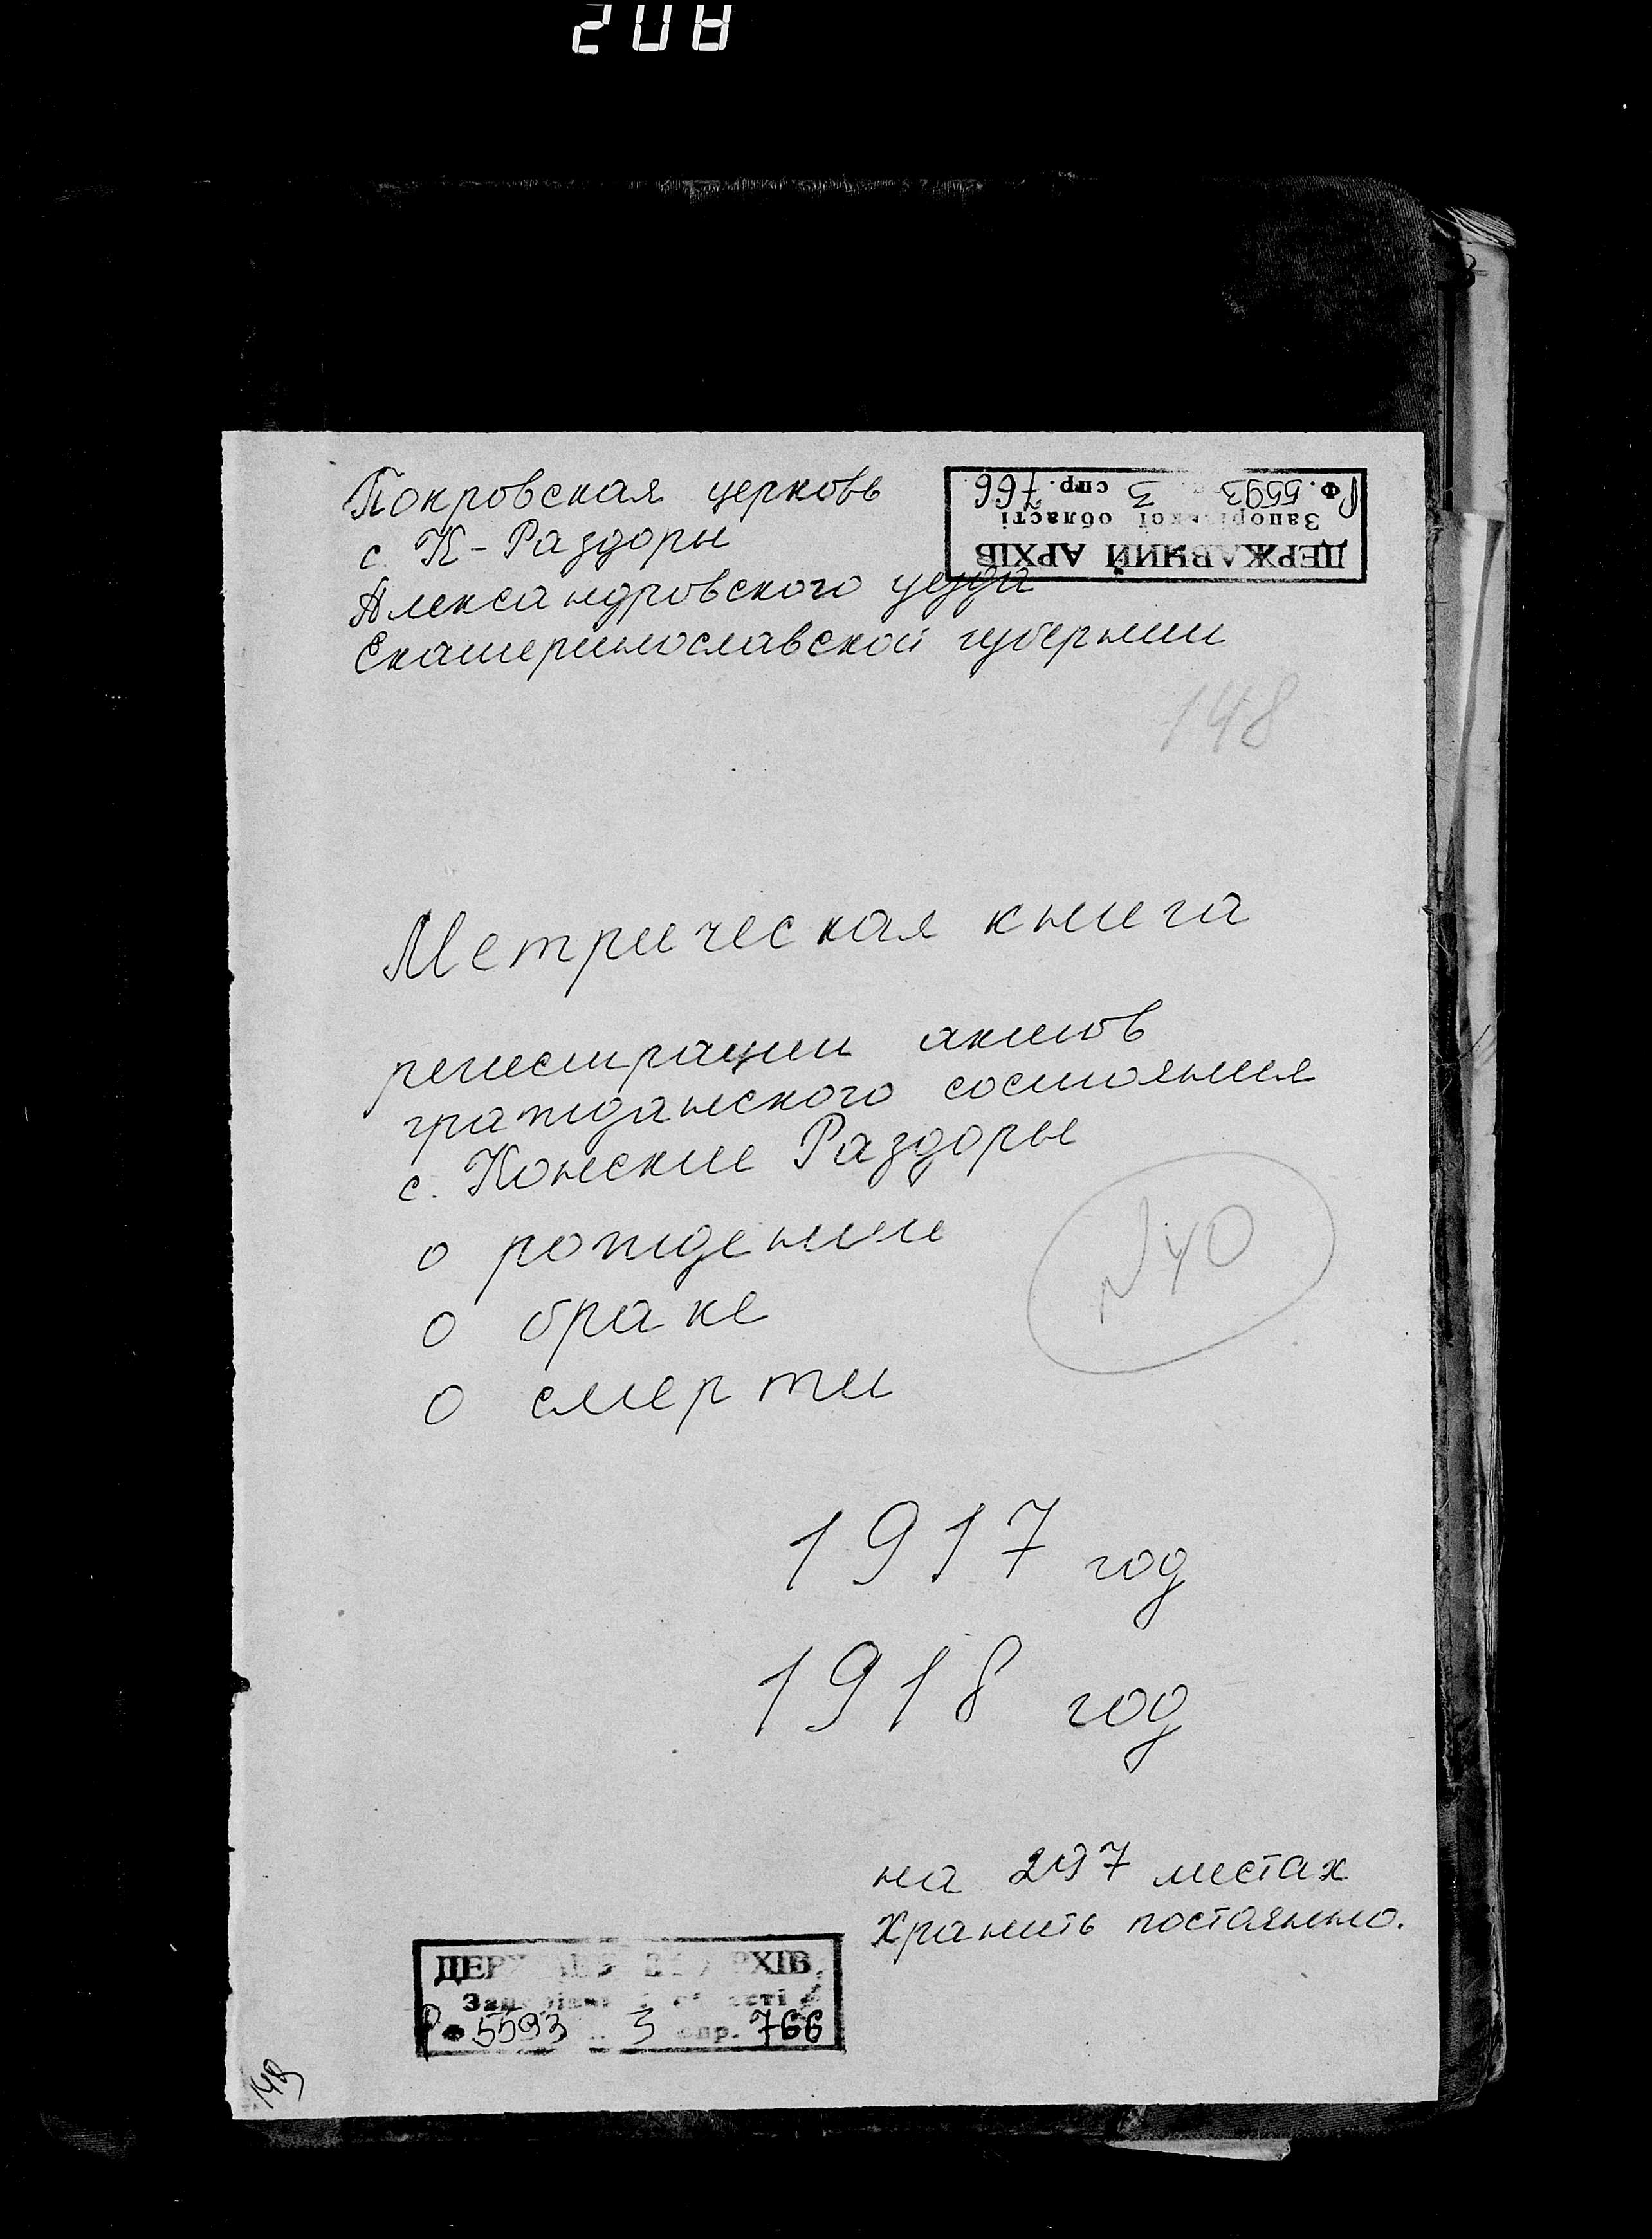 208
Покровская церковь
с. К-Раздоры
Александровского уезда
Екатеринославской губернии
ДЕРЖАВНИЙ АРХІВ
Запорізької області
Р Ф. 5593 3 спр. 766
148
Метрическая книга
регистрации актов
гражданского состояния
с. Конские Раздоры
о рождении
N40
о браке
о смерти
1917 год
1918 год
на 297 листах
Хранить постоянно.
ДЕРЖАВНИЙ АРХІВ
Запорізької області
Р Ф 5593 3 спр. 766
148